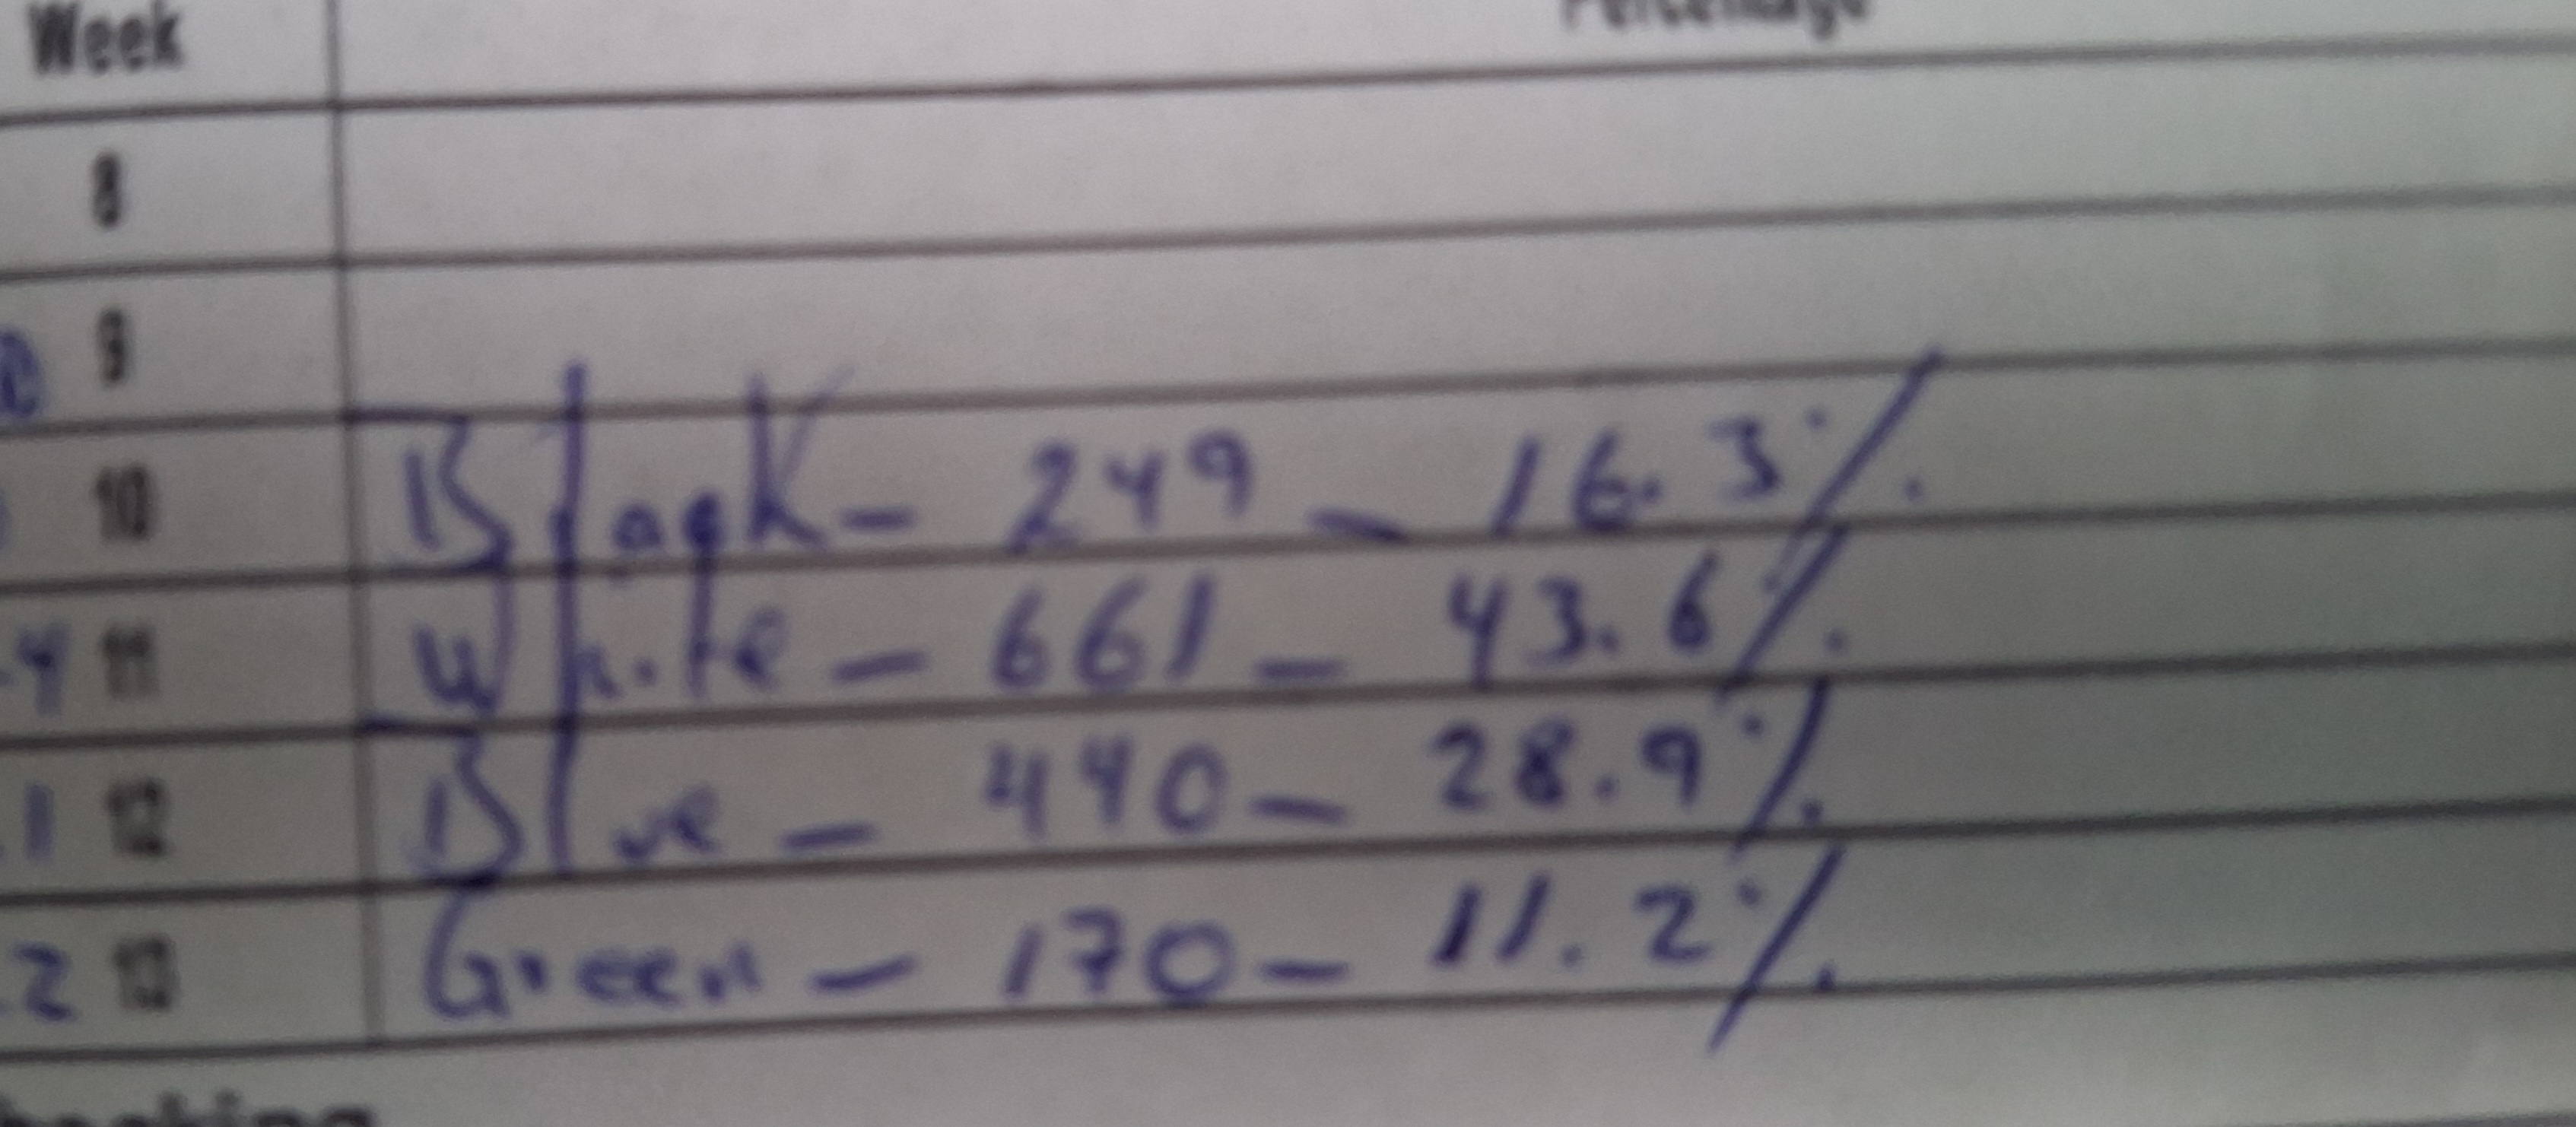 Week Percentage
8
9
10 Black - 249 - 16.3%
4 11 White - 661 - 43.6%
1 12 Blue - 440 - 28.9%
2 13 Green - 170 - 11.2%